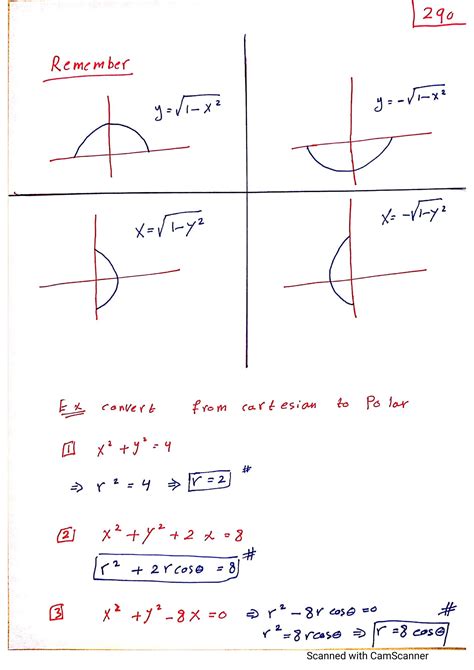 290
Remember
y=√1-x²
y=-√1-x²
x=√1-y²
x=-√1-y²
Ex convert from cartesian to Polar
1 x²+y²=4
⇒ r²=4 ⇒ r=2 #
2 x²+y²+2x=8
r²+2rcosθ=8 #
3 x²+y²-8x=0 ⇒ r²-8rcosθ=0 #
r²=8rcosθ ⇒ r=8cosθ
Scanned with CamScanner